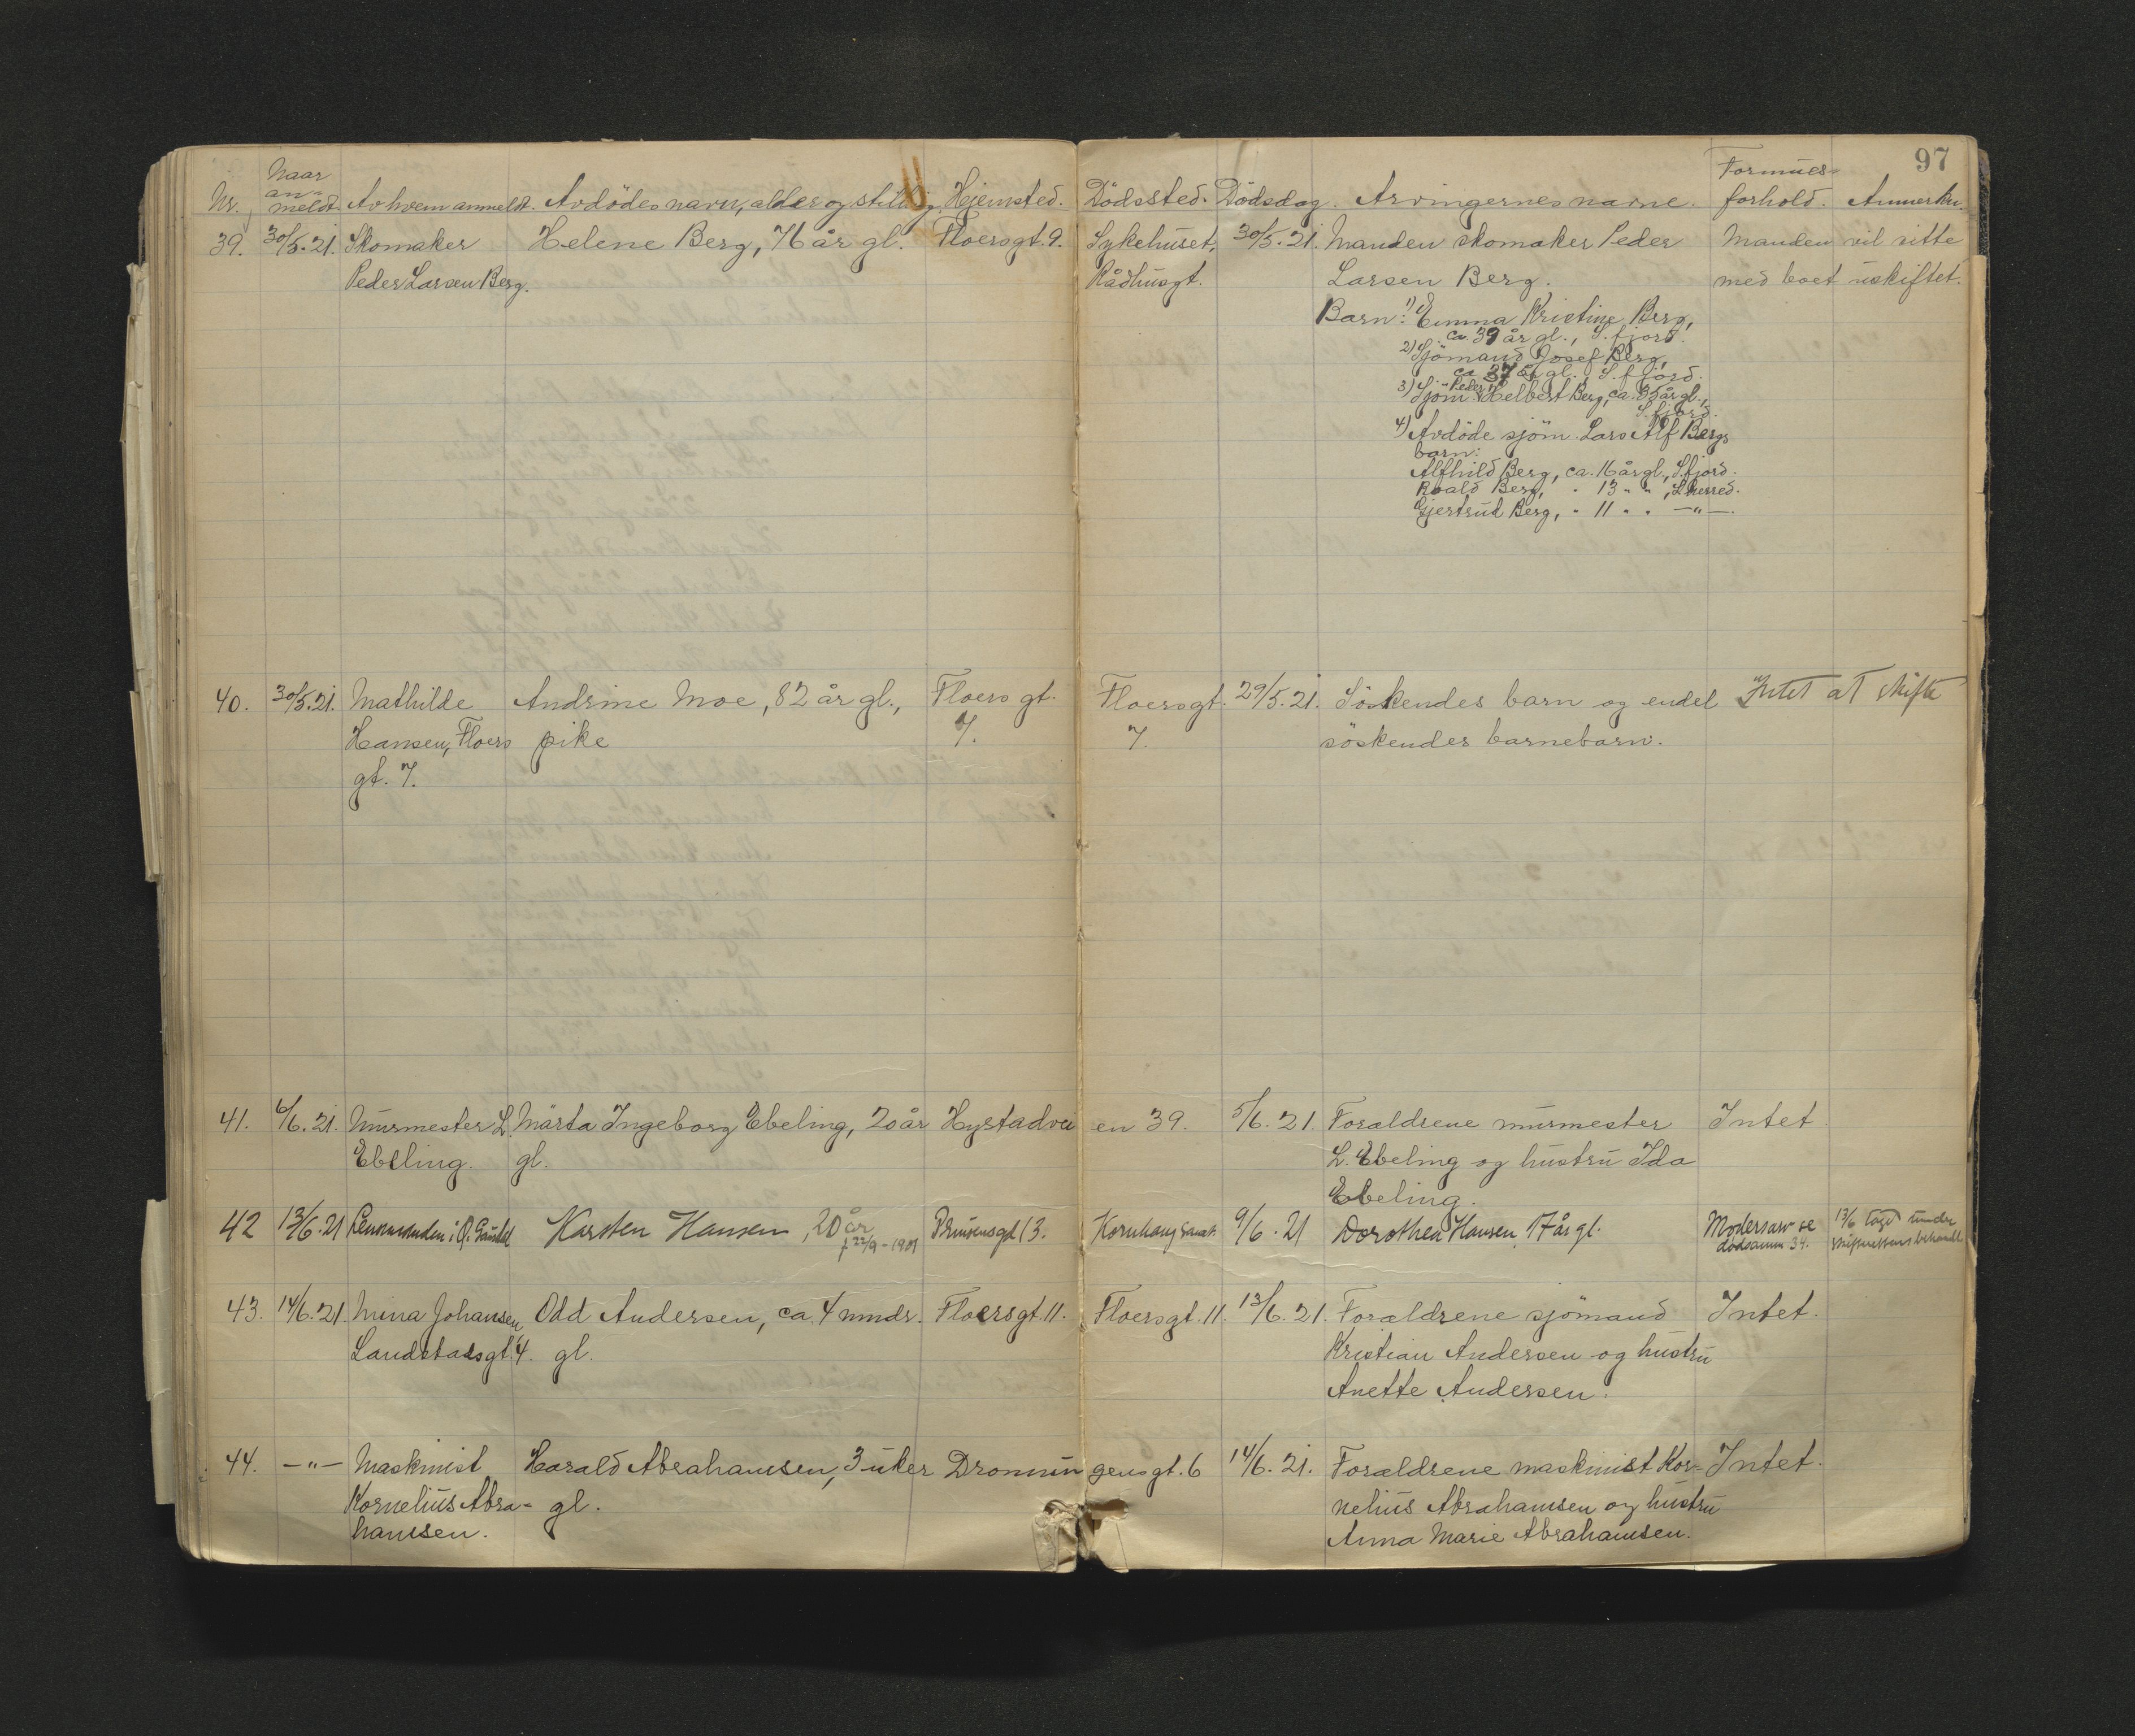 97
Nr. Naar an- meldt. Av hvem anmeldt. Avdödes navn, alder og stilling. Hjemsted. Dödssted. Dödsdag. Arvingernes navne. Formues- forhold. Anmerkn.
39. 30/5.21. Skomaker Helene Berg, 76 år gl. Floersgt. 9. Sykehuset, 30/5.21. Manden skomaker Peder Manden vil sitte
Peder Larsen Berg. Rådhusgt. Larsen Berg. med boet uskiftet.
Barn: 1) Emma Kristine Berg,
ca. 39 år gl., S.fjord.
2) Sjömand Josef Berg,
ca 37 år gl., S.fjord.
3) Sjöm. Peder Helbert Berg, ca. 35 år gl.,
S.fjord.
4) Avdöde sjöm. Lars Alf Bergs
barn:
Alfhild Berg, ca. 16 år gl., S.fjord.
Roald Berg, " 13 " ", S.herred.
Gjertrud Berg, " 11 " " —"—.
40. 30/5.21. Mathilde Andrine Moe, 82 år gl., Floers gt. Floersgt. 29/5.21. Söskendes barn og endel Intet at skifte
Hansen, Floers pike 7. 7. söskendes barnebarn.
gt. 7.
41. 6/6.21. Murmester L. Märta Ingeborg Ebeling, 20 år Hystadvei en 39. 5/6.21. Forældrene murmester Intet.
Ebeling. gl. L. Ebeling og hustru Ida
Ebeling.
42 13/6.21 Karsten Hansen, 20 år Prinsensgt 13. Kornhaug sanat. 9/6.21 Dorothea Hansen, 17 år gl. Modersarv se 13/6 tagt under
f 22/9-1901 dödsanm 34. skifterettens behandl.
43. 14/6.21. Mina Johansen, Odd Andersen, ca. 4 mndr. Floersgt. 11. Floersgt. 11. 13/6.21. Forældrene sjömand Intet.
Landstadsgt. 4. gl. Kristian Andersen og hustru
Anette Andersen.
44. —"— Maskinist Harald Abrahamsen, 3 uker Dronnin gensgt. 6 14/6.21. Forældrene maskinist Kor- Intet.
Kornelius Abra- gl. nelius Abrahamsen og hustru
hamsen. Anna Marie Abrahamsen.